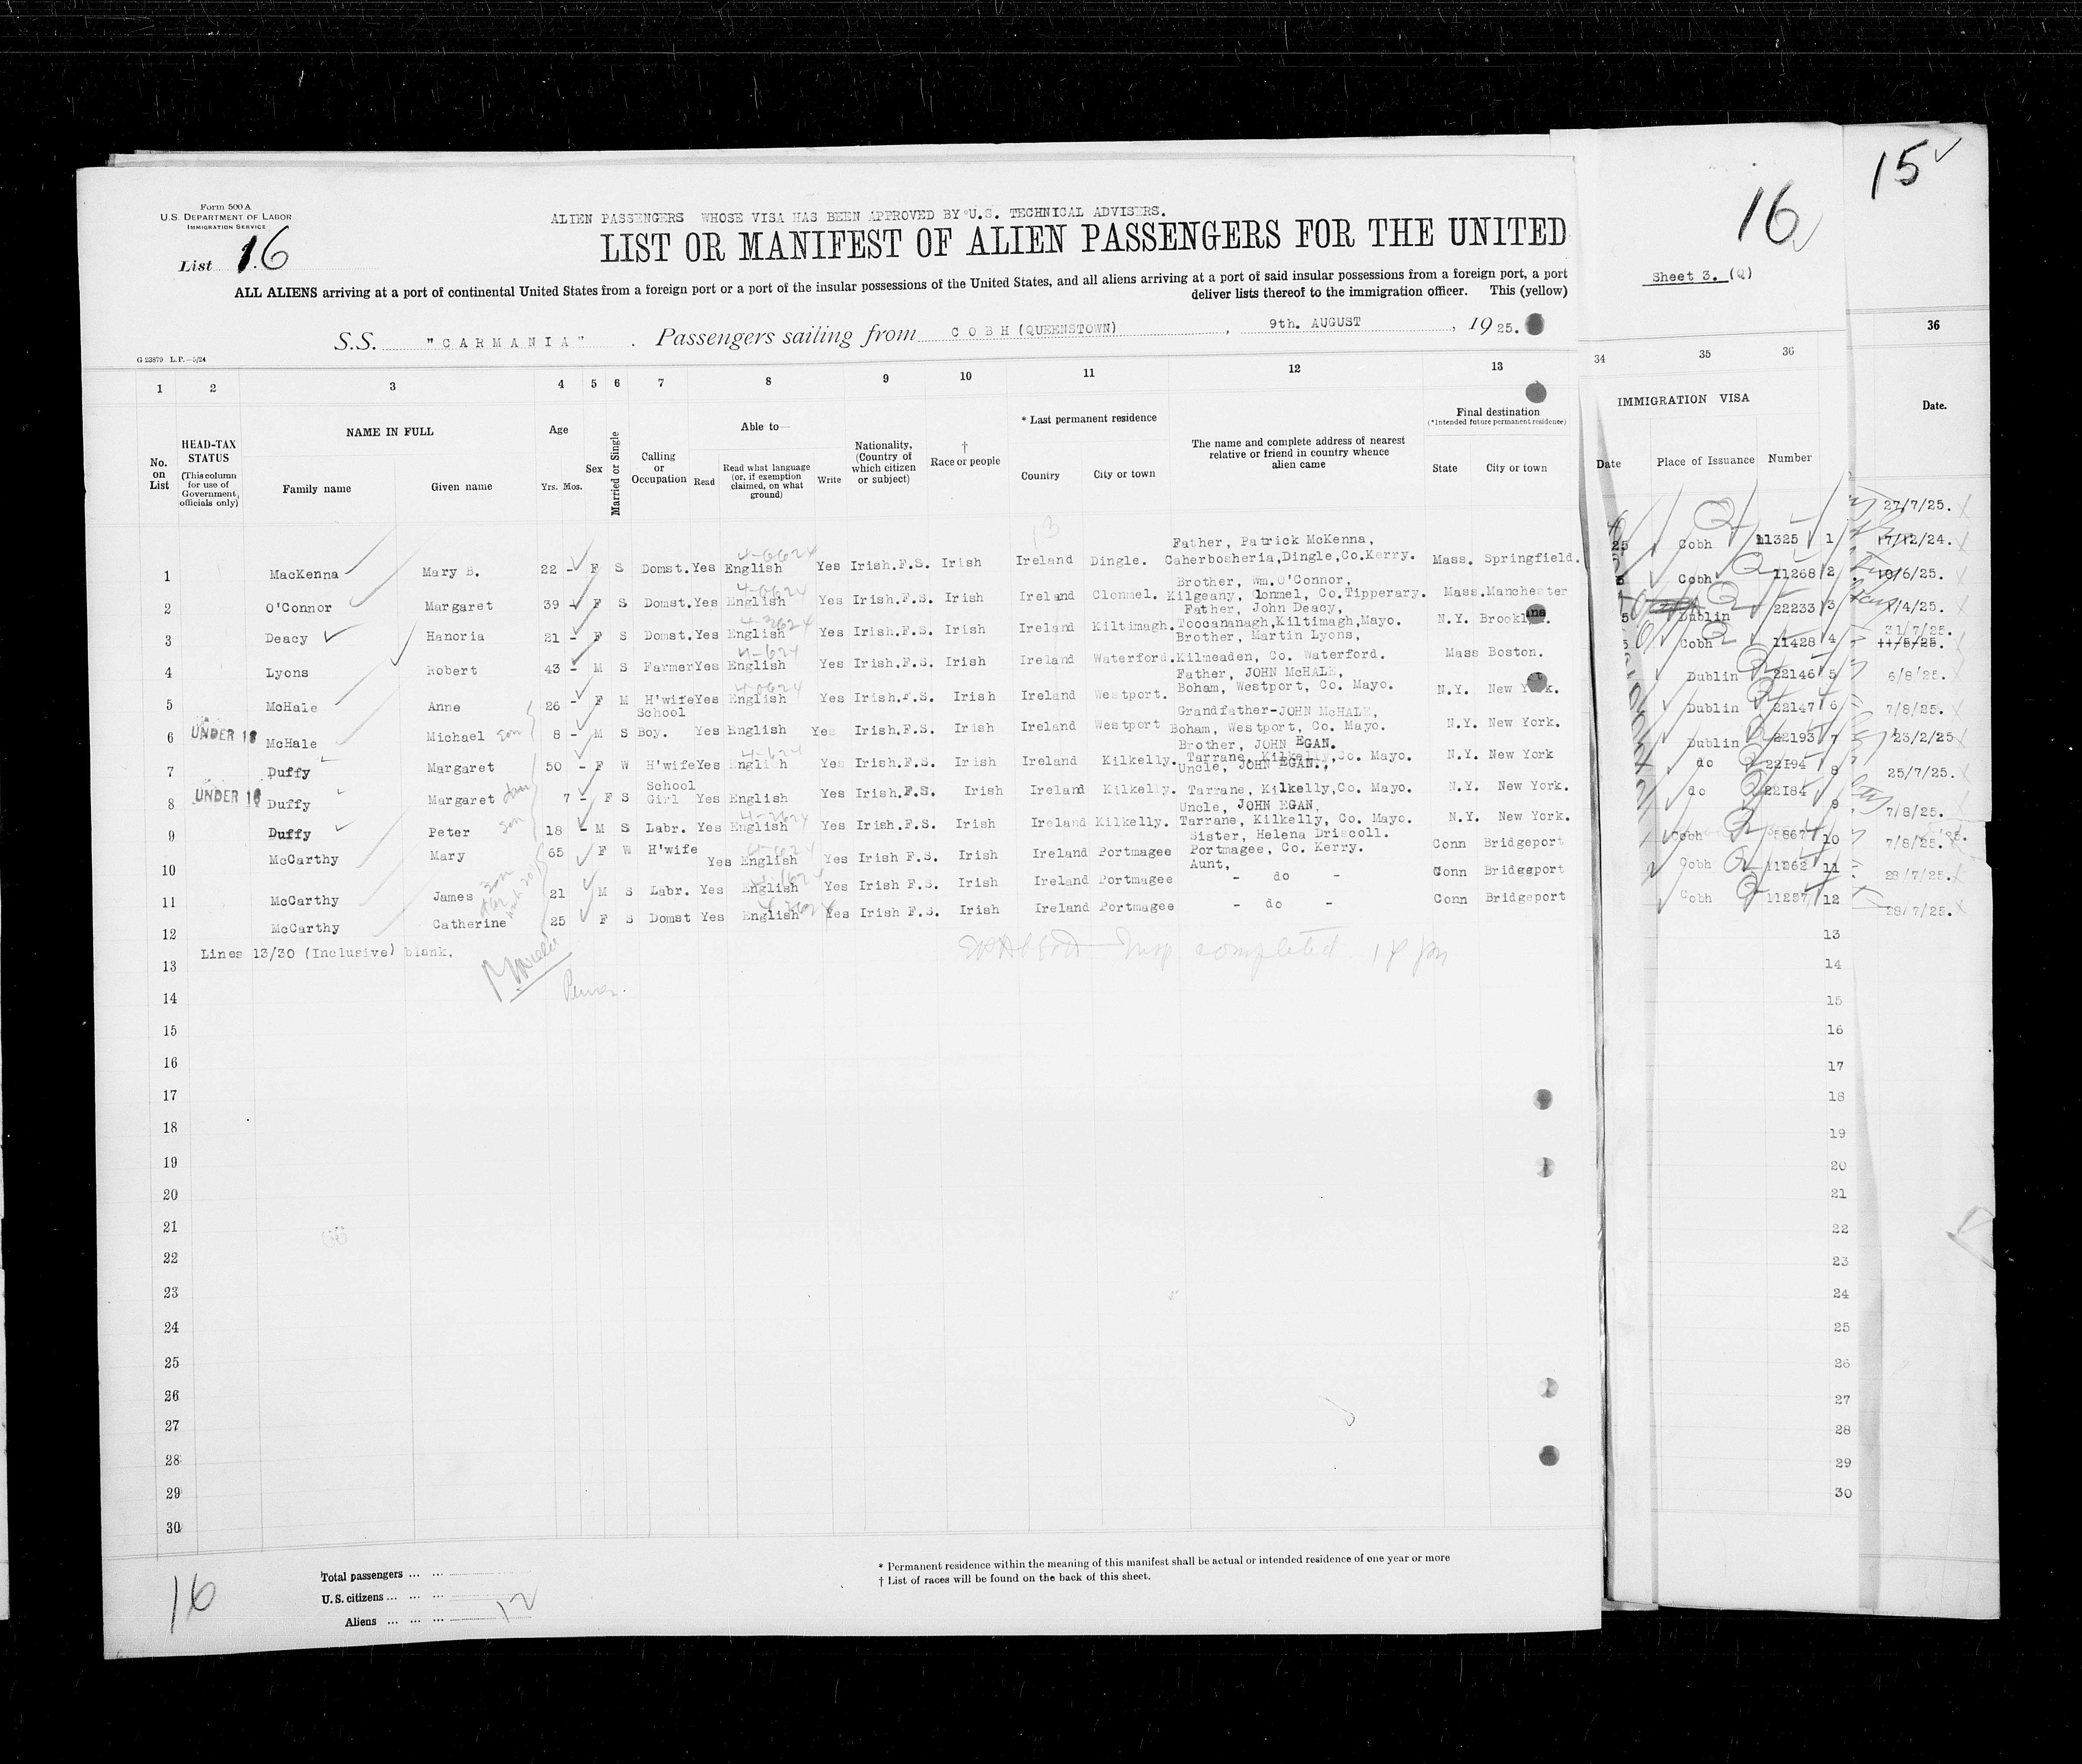 15
16
Form 500 A
U.S. DEPARTMENT OF LABOR
IMMIGRATION SERVICE
List 16
ALIEN PASSENGERS WHOSE VISA HAS BEEN APPROVED BY U.S. TECHNICAL ADVISERS.
LIST OR MANIFEST OF ALIEN PASSENGERS FOR THE UNITED
Sheet 3. (Q)
ALL ALIENS arriving at a port of continental United States from a foreign port or a port of the insular possessions of the United States, and all aliens arriving at a port of said insular possessions from a foreign port, a port
deliver lists thereof to the immigration officer. This (yellow)
S.S. "CARMANIA". Passengers sailing from COBH (QUEENSTOWN), 9th. AUGUST, 1925.
G 23879 L.P.—5/24
1 2 3 4 5 6 7 8 9 10 11 12 13 34 35 36 36
No. on List
HEAD-TAX STATUS
(This column for use of Government officials only)
NAME IN FULL
Family name Given name
Age
Yrs. Mos.
Sex
Married or Single
Calling or Occupation
Able to—
Read
Read what language (or, if exemption claimed, on what ground)
Write
Nationality, (Country of which citizen or subject)
† Race or people
* Last permanent residence
Country City or town
The name and complete address of nearest relative or friend in country whence alien came
Final destination
(*Intended future permanent residence)
State City or town
IMMIGRATION VISA
Date Place of Issuance Number
Date.
1 MacKenna Mary B. 22 - F S Domst. Yes English Yes Irish.F.S. Irish Ireland Dingle. Father, Patrick McKenna, Caherbosheria,Dingle,Co.Kerry. Mass. Springfield. 25 Cobh 11325 1
2 O'Connor Margaret 39 - F S Domst. Yes English Yes Irish.F.S. Irish Ireland Clonmel. Brother, Wm.O'Connor, Kilgeany, Clonmel, Co.Tipperary. Mass. Manchester Cobh 11268 2
3 Deacy Hanoria 21 - F S Domst. Yes English Yes Irish.F.S. Irish Ireland Kiltimagh. Father, John Deacy, Toocananagh,Kiltimagh,Mayo. N.Y. Brooklyn. Dublin 22233 3
4 Lyons Robert 43 - M S Farmer Yes English Yes Irish.F.S. Irish Ireland Waterford. Brother, Martin Lyons, Kilmeaden, Co. Waterford. Mass Boston. Cobh 11428 4
5 McHale Anne 26 - F M H'wife Yes English Yes Irish.F.S. Irish Ireland Westport. Father, JOHN McHALE, Boham, Westport, Co. Mayo. N.Y. New York. Dublin 22146 5
6 UNDER 16 McHale Michael son 8 - M S School Boy. Yes English Yes Irish.F.S. Irish Ireland Westport Grandfather-JOHN McHALE, Boham, Westport, Co. Mayo. N.Y. New York. Dublin 22147 6
7 Duffy Margaret 50 - F W H'wife Yes English Yes Irish.F.S. Irish Ireland Kilkelly. Brother, JOHN EGAN. Tarrane, Kilkelly,Co. Mayo. N.Y. New York Dublin 22193 7
8 UNDER 16 Duffy Margaret 7 - F S School Girl Yes English Yes Irish.F.S. Irish Ireland Kilkelly. Uncle, JOHN EGAN., Tarrane, Kilkelly,Co. Mayo. N.Y. New York. do 22194 8
9 Duffy Peter son 18 - M S Labr. Yes English Yes Irish.F.S. Irish Ireland Kilkelly. Uncle, JOHN EGAN, Tarrane, Kilkelly, Co. Mayo. N.Y. New York. do 22184 9
10 McCarthy Mary 65 F W H'wife Yes English Yes Irish F.S. Irish Ireland Portmagee Sister, Helena Driscoll. Portmagee, Co. Kerry. Conn Bridgeport Cobh 5867 10
11 McCarthy James son 21 M S Labr. Yes English Yes Irish F.S. Irish Ireland Portmagee Aunt, - do - Conn Bridgeport Cobh 11262 11
12 McCarthy Catherine 25 F S Domst Yes English Yes Irish F.S. Irish Ireland Portmagee - do - Conn Bridgeport Cobh 11257 12
27/7/25.
17/12/24.
10/6/25.
1/4/25.
31/7/25.
11/5/25.
6/8/25.
7/8/25.
23/2/25
25/7/25.
7/8/25.
7/8/25.
28/7/25.
28/7/25.
Lines 13/30 (Inclusive) blank.
Insp completed
13 13
14 14
15 15
16 16
17 17
18 18
19 19
20 20
21 21
22 22
23 23
24 24
25 25
26 26
27 27
28 28
29 29
30 30
* Permanent residence within the meaning of this manifest shall be actual or intended residence of one year or more
† List of races will be found on the back of this sheet.
16
Total passengers
U.S. citizens
Aliens 12